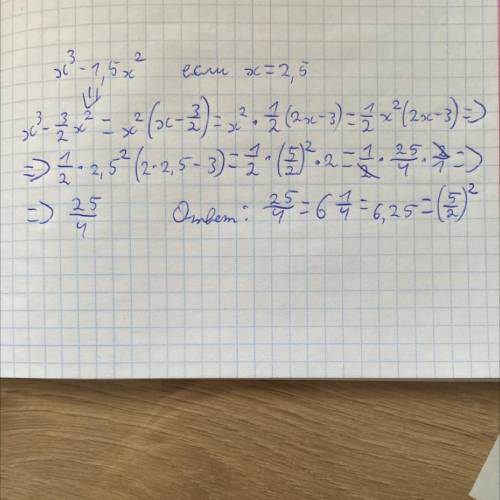 x³ - 1,5x² если x = 2,5
⇓
x³ - 3/2 x² = x² (x - 3/2) = x² · 1/2 (2x - 3) = 1/2 x² (2x - 3) =>
=> 1/2 · 2,5² (2 · 2,5 - 3) = 1/2 · (5/2)² · 2 = 1/2 · 25/4 · 2/1 =>
=> 25/4 Ответ: 25/4 = 6 1/4 = 6,25 = (5/2)²